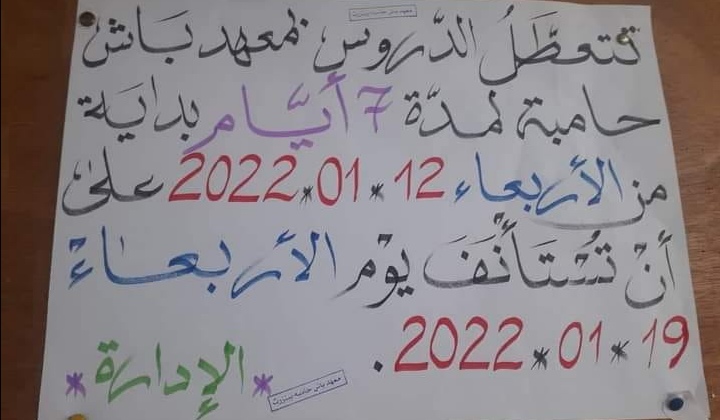 معهد باش حامبة ببنزرت
تتعطّلُ الدّروس بمعهد باش
حامبة لمدّة 7 أيّام بداية
من الأربعاء 12*01*2022 على
أنْ تُسْتَأْنَفَ يوْم الأربعاءْ
19*01*2022.
*الإدارة*
معهد باش حامبة ببنزرت